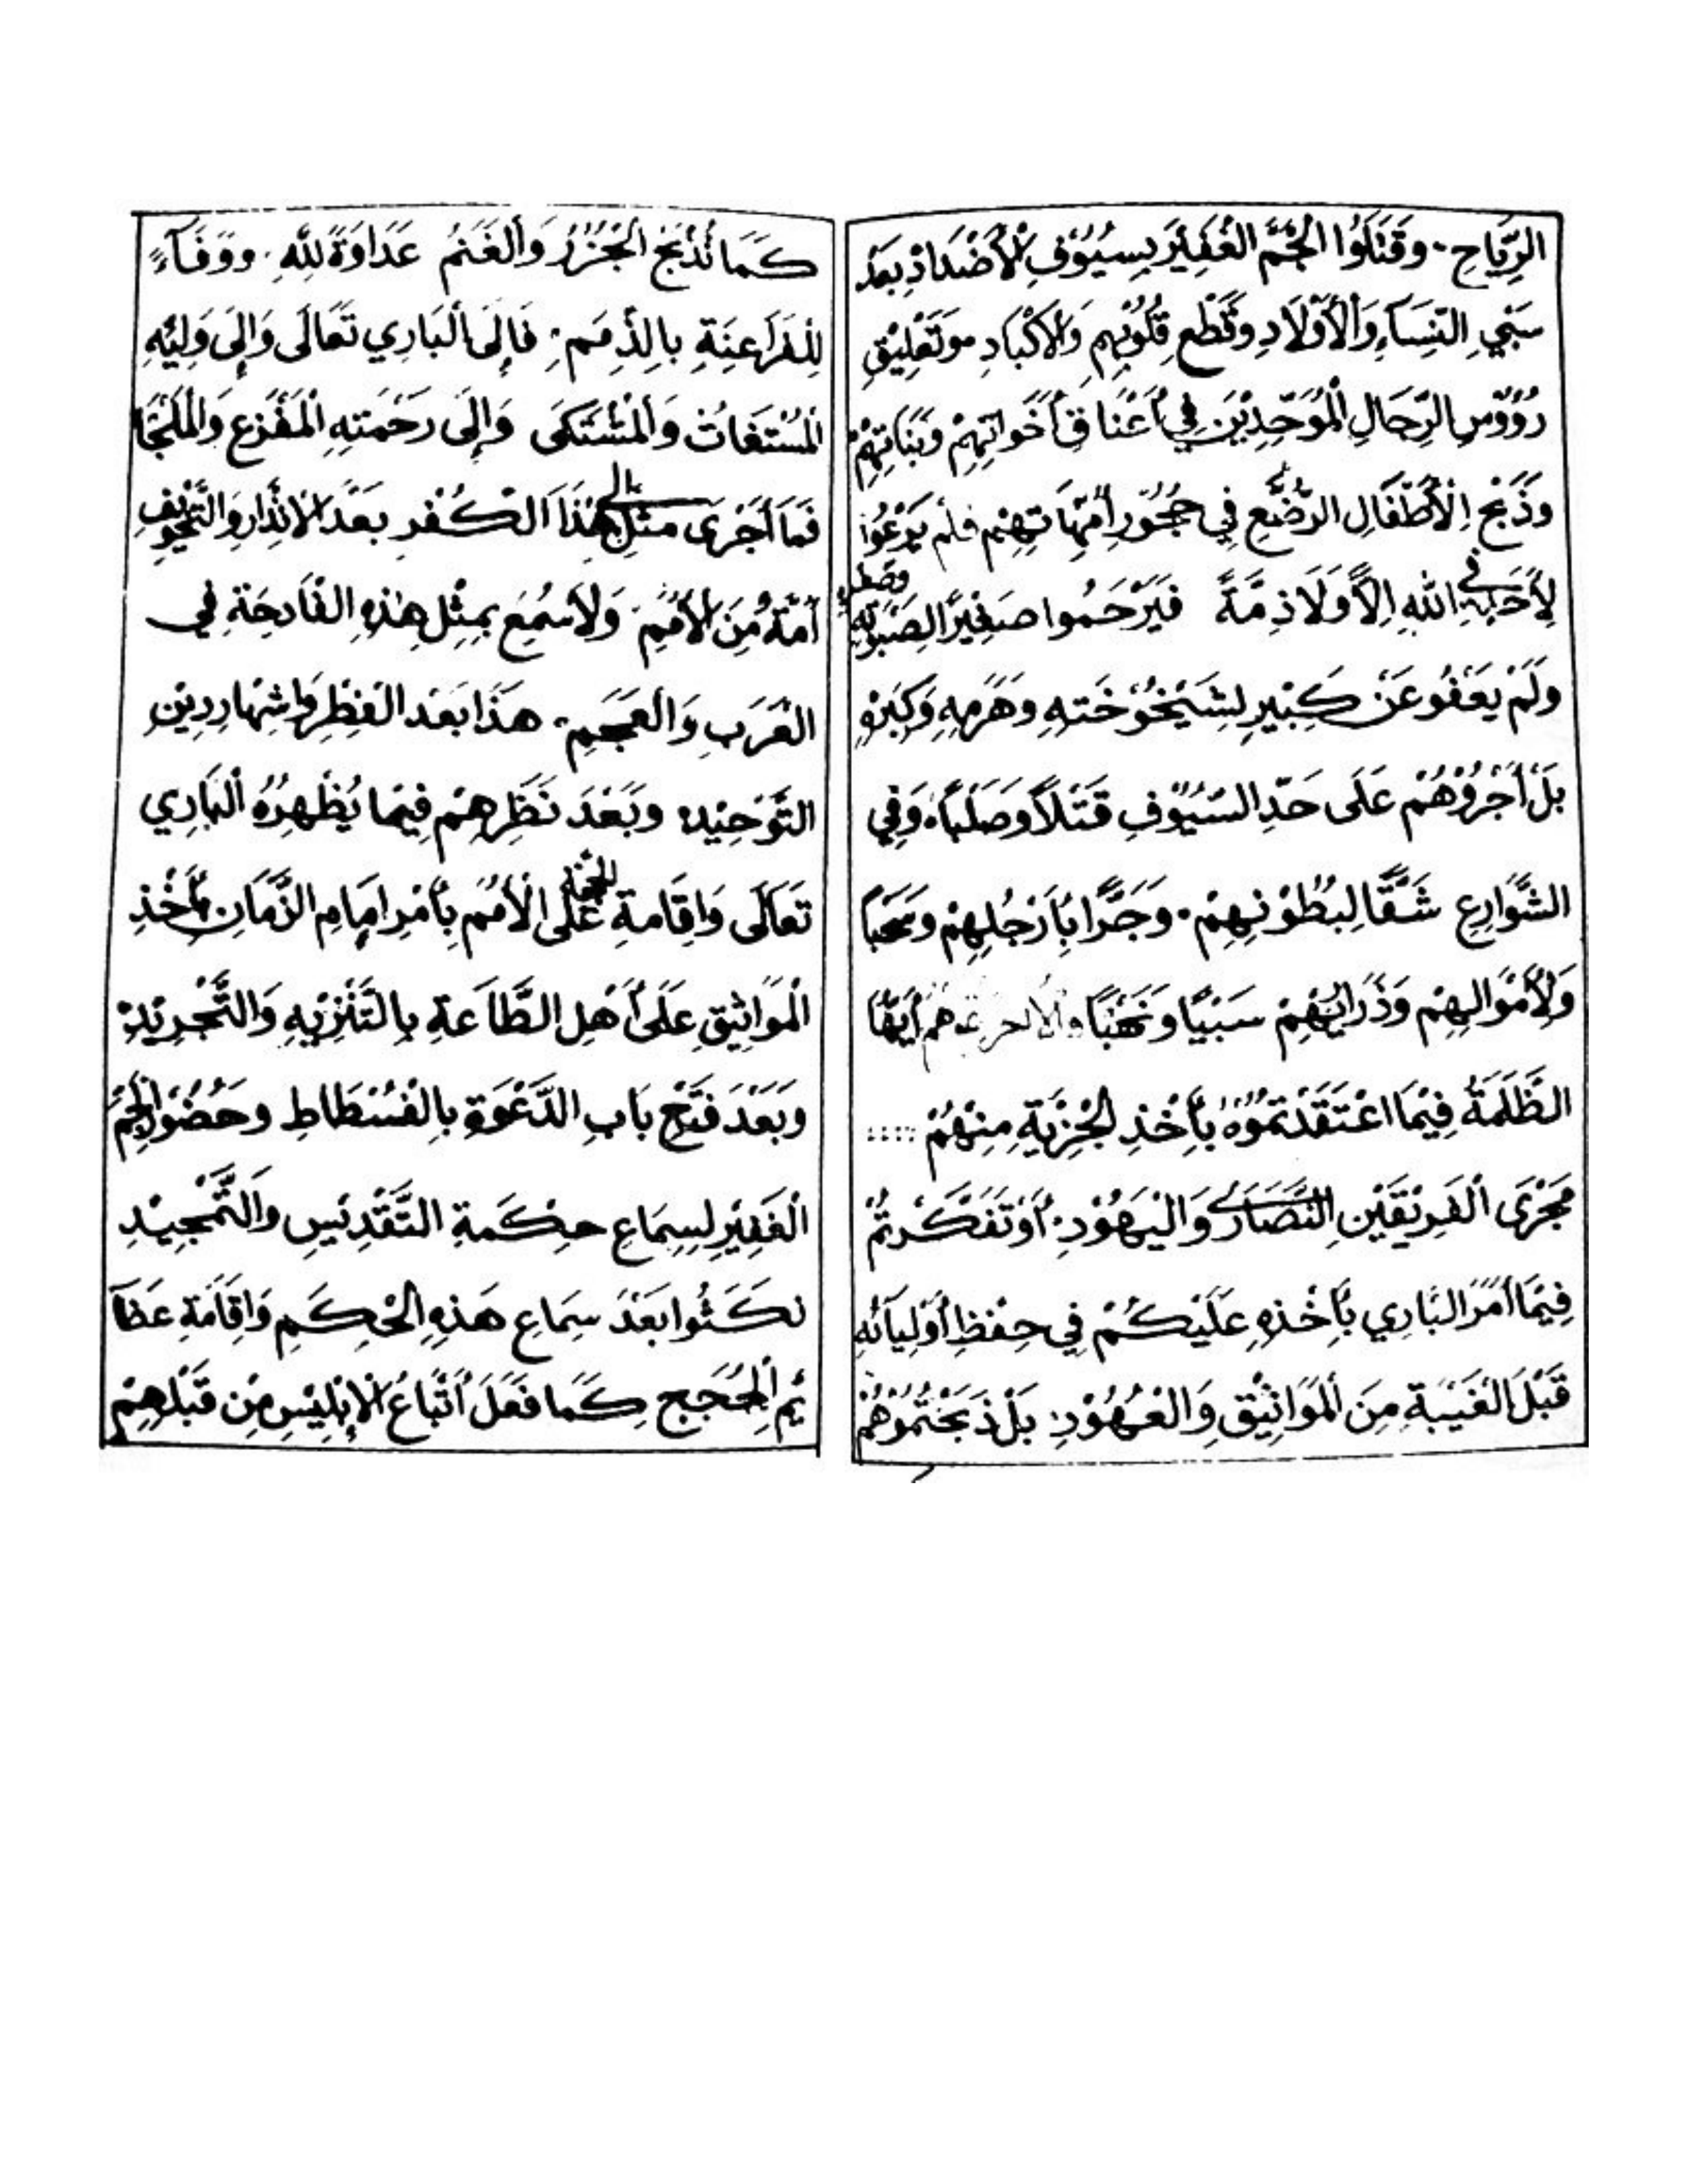 الرِّيَاحِ. وَقَتَلُوا الْجَمَّ الْغَفِيْرَ بِسِيُوْفِ الْأَضْدَادِ بَعْدَ
سَبْيِ النِّسَآءِ وَالْأَوْلَادِ وَقَطْعِ قُلُوْبِهِمِ وَالْأَكْبَادِ وَتَعْلِيْقِ
رُؤُوْسِ الرِّجَالِ الْمُوَحِّدِيْنَ فِي أَعْنَاقِ أَخَوَاتِهِمْ وَبَنَاتِهِمْ
وَذَبْحِ الْأَطْفَالِ الرُّضَّعِ فِي حُجُوْرِ أُمَّهَاتِهِمْ فَلَمْ يَرْعَوْا
لِأَحَبَّةٍ فِي اللهِ إِلًّا وَلَا ذِمَّةً فَيَرْحَمُوا صَغِيْرًا لِصَبْوَتِهِ
وَلَمْ يَعْفُو عَنْ كَبِيْرٍ لِشَيْخُوْخَتِهِ وَهَرَمِهِ وَكِبَرِهِ
بَلْ أَجْرُوْهُمْ عَلَى حَدِّ السُّيُوْفِ قَتْلًا وَصَلْبًا، وَفِي
الشَّوَارِعِ شَقًّا لِبُطُوْنِهِمْ. وَجَرًّا بِأَرْجُلِهِمْ وَسَحْبًا
وَلِأَمْوَالِهِمْ وَذَرَارِيْهِمْ سَبْيًا وَنَهْبًا أَيُّهَا
الظَّلَمَةُ فِيْمَا اعْتَقَدْتُمُوْهُ بِأَخْذِ الْجِزْيَةِ مِنْهُمْ ....
مَجْرَى الْفَرِيْقَيْنِ النَّصَارَى وَالْيَهُوْدِ. أَوْ تَفَكَّرْتُمْ
فِيْمَا أَمَرَ الْبَارِي بِأَخْذِهِ عَلَيْكُمْ فِي حِفْظِ أَوْلِيَآئِهِ
قَبْلَ الْغَيْبَةِ مِنَ الْمَوَاثِيْقِ وَالْعُهُوْدِ. بَلْ ذَبَحْتُمُوْهُمْ
كَمَا تُذْبَحُ الْجُزُرُ وَالْغَنَمُ عَدَاوَةً لِلّٰهِ. وَوَفَآءً
لِلْفَرَاعِنَةِ بِالذِّمَمِ. فَإِلَى الْبَارِي تَعَالَى وَإِلَى وَلِيِّهِ
الْمُسْتَغَاثُ وَالْمُشْتَكَى وَإِلَى رَحْمَتِهِ الْمَفْزَعُ وَالْمَلْجَا
فَمَا أَجْرَى إِلَى مِثْلِ هٰذَا الْكُفْرِ بَعْدَ الْإِنْذَارِ وَالتَّخْوِيْفِ
أُمَّةٌ مِنَ الْأُمَمِ. وَلَا سُمِعَ بِمِثْلِ هٰذِهِ الْفَادِحَةِ فِي
الْعَرَبِ وَالْعَجَمِ. هَذَا بَعْدَ الْفِطْرِ وَإِشْهَارِ دِيْنِ
التَّوْحِيْدِ وَبَعْدَ نَظَرِهِمْ فِيْمَا يُظْهِرُهُ الْبَارِي
تَعَالَى وَإِقَامَةِ الْحُجَّةِ عَلَى الْأُمَمِ بِأَمْرِ إِمَامِ الزَّمَانِ بِأَخْذِ
الْمَوَاثِيْقِ عَلَى أَهْلِ الطَّاعَةِ بِالتَّنْزِيْهِ وَالتَّجْرِيْدِ
وَبَعْدَ فَتْحِ بَابِ الدَّعْوَةِ بِالْفُسْطَاطِ وَحُضُوْرِ الْجَمِّ
الْغَفِيْرِ لِسِمَاعِ حِكْمَةِ التَّقْدِيْسِ وَالتَّمْجِيْدِ
نَكَثُوا بَعْدَ سِمَاعِ هَذِهِ الْحِكَمِ وَإِقَامَةِ عَظَآ
ئِمِ الْحُجَجِ كَمَا فَعَلَ أَتْبَاعُ الْإِبْلِيْسِ مِنْ قَبْلِهِمْ